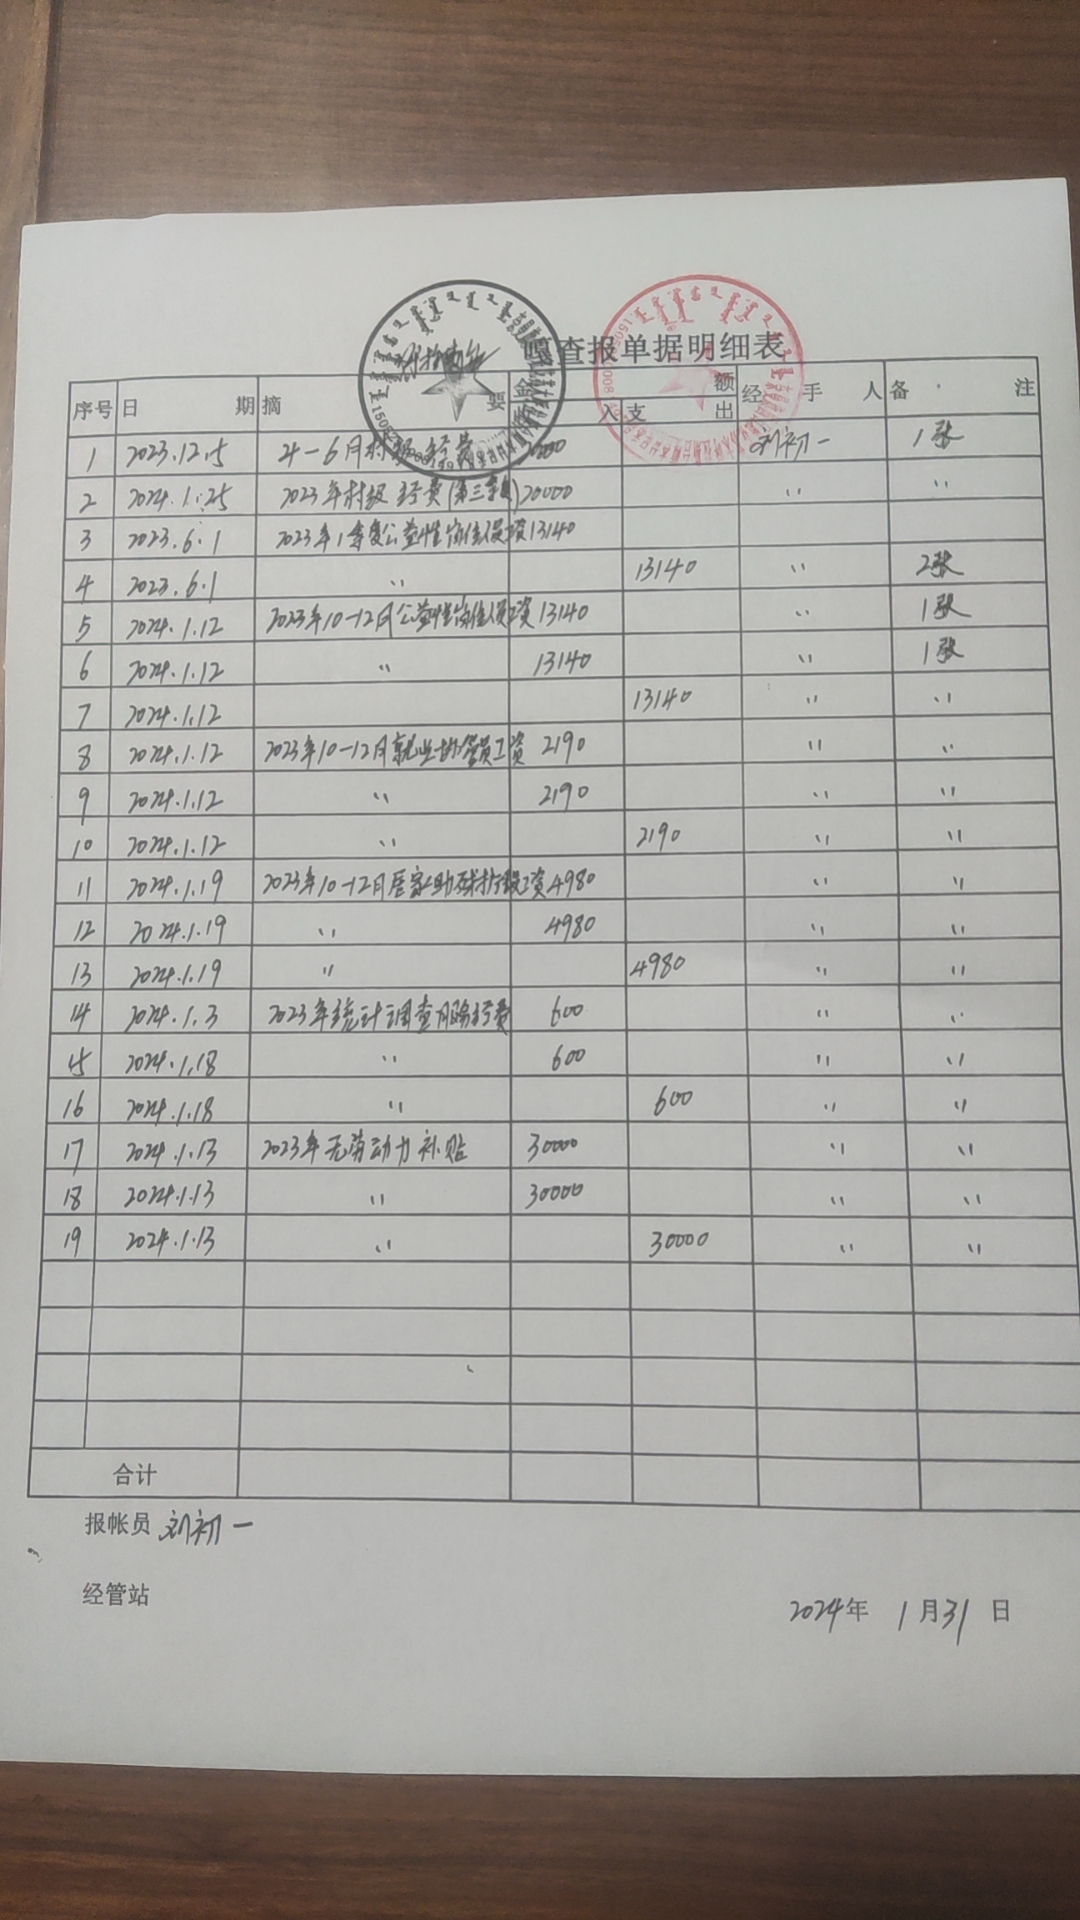 嘎查报单据明细表
序号 日期 摘要 金额 经手人 备注
入 支出
1 2023.12.5 4-6月村级经费 刘初一 1张
2 2024.1.25 2023年村级经费(第三季度) 20000 〃 〃
3 2023.6.1 2023年1季度公益性岗位员工资 13140
4 2023.6.1 〃 13140 〃 2张
5 2024.1.12 2023年10-12月公益性岗位员工资 13140 〃 1张
6 2024.1.12 〃 13140 〃 1张
7 2024.1.12 13140 〃 〃
8 2024.1.12 2023年10-12月就业协管员工资 2190 〃 〃
9 2024.1.12 〃 2190 〃 〃
10 2024.1.12 〃 2190 〃 〃
11 2024.1.19 2023年10-12月居家助残 工资 4980 〃 〃
12 2024.1.19 〃 4980 〃 〃
13 2024.1.19 〃 4980 〃 〃
14 2024.1.3 2023年统计调查 经费 600 〃 〃
15 2024.1.18 〃 600 〃 〃
16 2024.1.18 〃 600 〃 〃
17 2024.1.13 2023年无劳动力补贴 30000 〃 〃
18 2024.1.13 〃 30000 〃 〃
19 2024.1.13 〃 30000 〃 〃
合计
报帐员 刘初一
经管站
2024年 1月31日